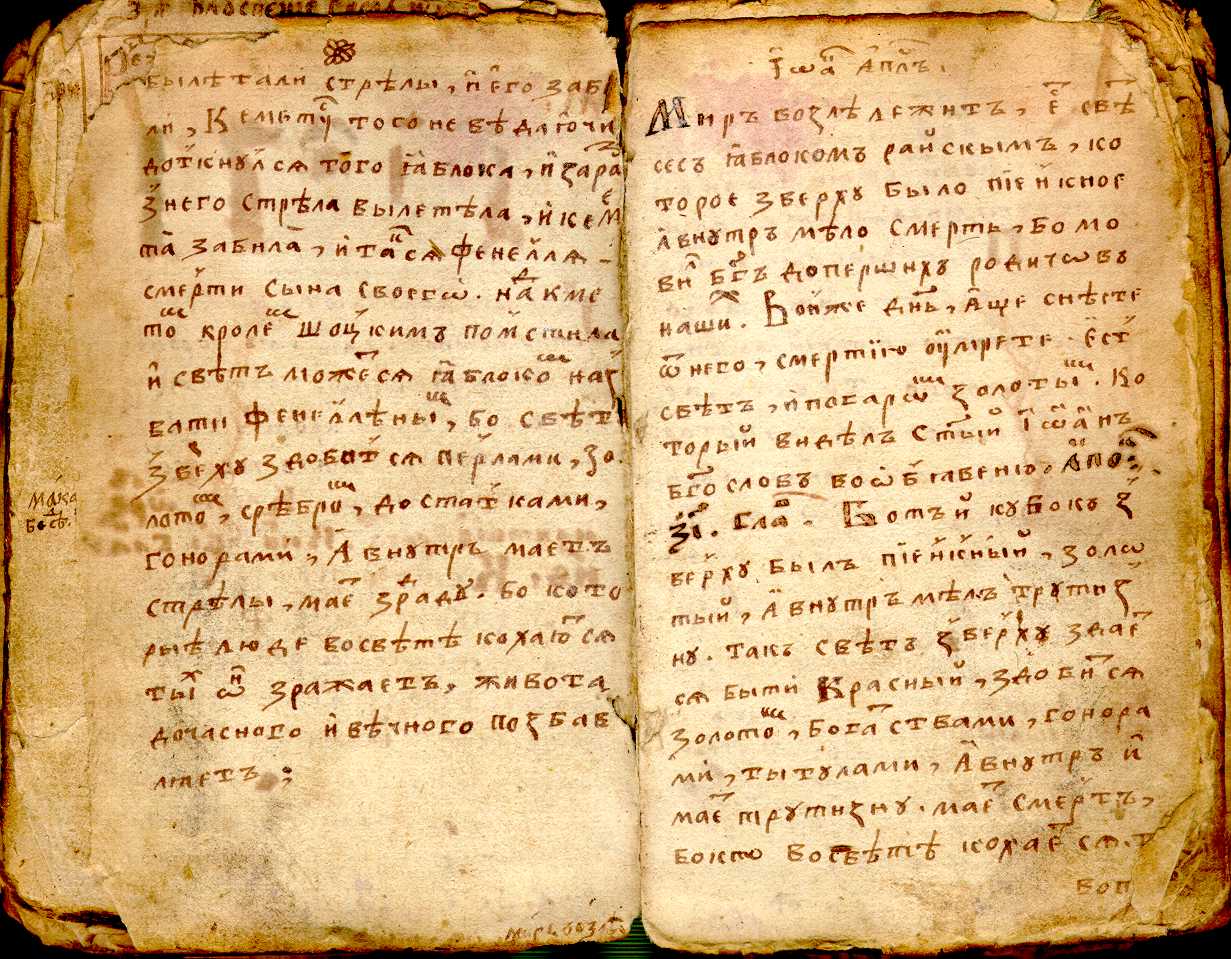 вылѣтали стрѣлы, и его заби
ли, Кеметій того не вѣдаючи
доткнулся того яблока, и зара
з него стрѣла вылетѣла, и Кеме
та забила, и так ся Фенелля
смерти сына своегѡ. над Кме
том кролем Шоцкимъ помстила
и свѣтъ может ся яблоком наз
вати Фенеллѣным, бо свѣт
зверху здобит ся перлами, зо
лотом, сребром, достатками,
гонорами, А внутръ маетъ
стрѣлы, мает зраду. бо кото
рыѣ люде во свѣтѣ кохают ся
тых ѡн зражаетъ, живота
дочасного и вѣчного позбав
ляетъ;
Іѡа Апл҃ъ.
Миръ во злѣ лежитъ, Ест свѣ
сесъ яблокомъ райскымъ, ко
торое зверху было піенкное
А внутръ мѣло смерть, бо мо
вил Бг҃ъ до першихъ родичѡвъ
наших. Вонже днь, аще снѣсте
ѿ него, смертію оумрете. Ест
свѣтъ, и погарѡм золотым. Ко
торый видѣлъ Стый Іѡанъ
Бг҃ословъ во ѡбявению. Апо:
зі. Гла. Ботъй кубокъ з
верху былъ піенкный, золѡ
тый, А внутръ мѣлъ трутиз
ну. такъ свѣтъ зверху здает
ся быти красный, здобит ся
золотом, богатствами, гонора
ми, тытулами, А внутръ и
мает трутизну. мает смерть,
бо ктѡ во свѣтѣ кохает ся. т
боп